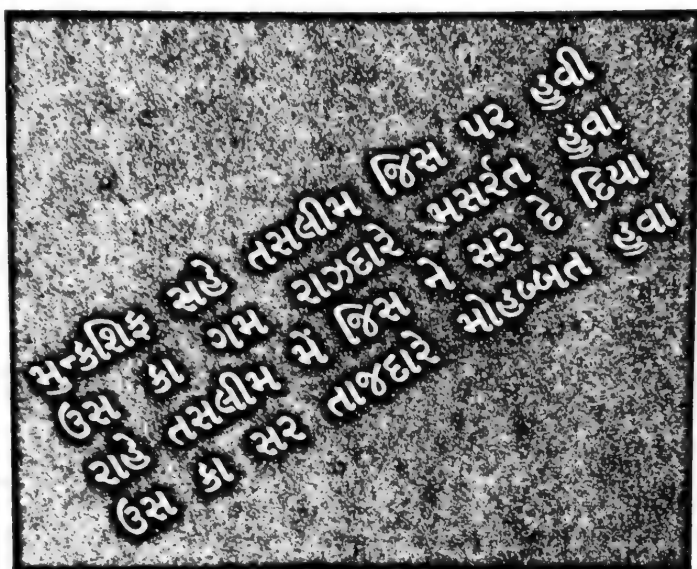 મુન્કશિફ સહે તસલીમ જિસ પર હુવી
ઉસ કા ગમ રાઝદારે મસર્રત હુવા
રાહે તસલીમ મેં જિસ ને સર દે દિયા
ઉસ કા સર તાજદારે મોહબ્બત હુવા